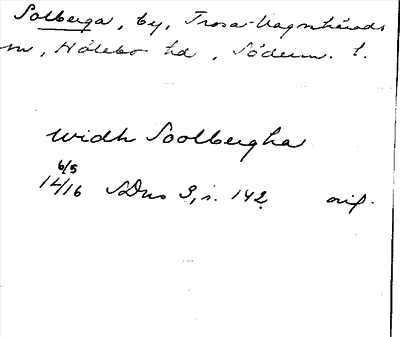 Solberga, by, Trosa-Vagnhärads
sn, Hölebo hd, Söderm. l.
widh Soolbergha
6/5
14/16 SDns 3, s. 142 orig.